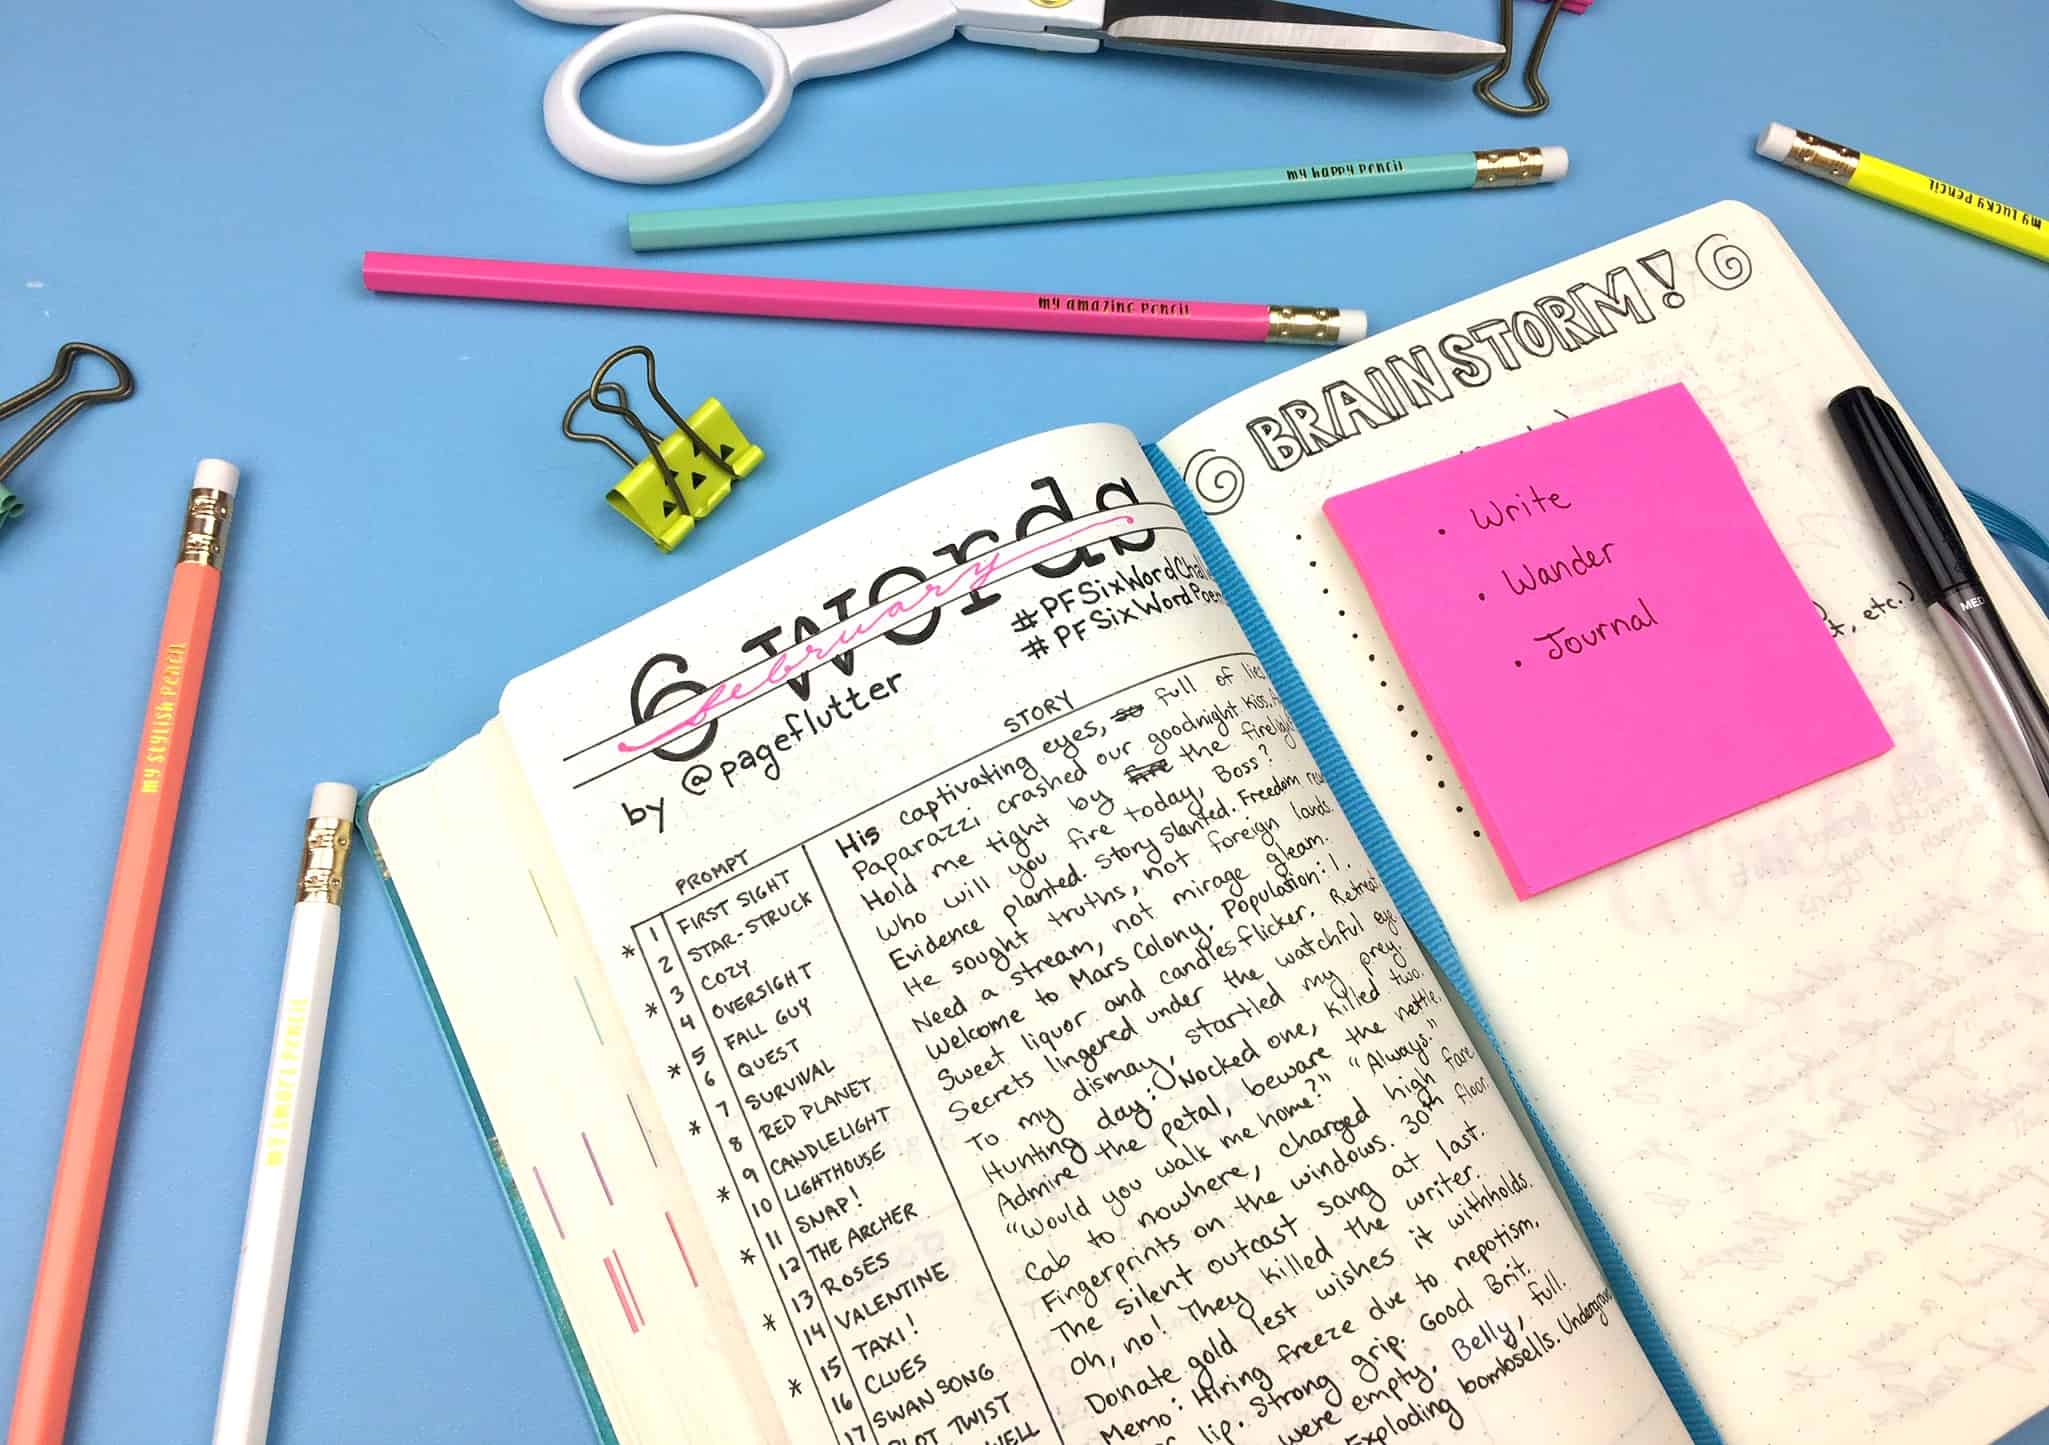 my happy pencil
my lucky pencil
my amazing pencil
my stylish pencil
my smart pencil
6 words
february
by @pageflutter
#PFSixWordChal
#PFSixWordPoem
PROMPT STORY
* 1 FIRST SIGHT His captivating eyes, so full of lies
2 STAR-STRUCK Paparazzi crashed our goodnight kiss.
* 3 COZY Hold me tight by fire the firelight
4 OVERSIGHT Who will you fire today, Boss?
* 5 FALL GUY Evidence planted. Story slanted. Freedom
6 QUEST He sought truths, not foreign lands.
* 7 SURVIVAL Need a stream, not mirage gleam.
8 RED PLANET Welcome to Mars Colony. Population: 1.
* 9 CANDLELIGHT Sweet liquor and candles flicker. Retreat
10 LIGHTHOUSE Secrets lingered under the watchful eye
* 11 SNAP! To my dismay, startled my prey.
12 THE ARCHER Hunting day: Nocked one, killed two.
13 ROSES Admire the petal, beware the nettle.
* 14 VALENTINE "Would you walk me home?" "Always."
15 TAXI! Cab to nowhere, charged high fare
* 16 CLUES Fingerprints on the windows. 30th floor.
17 SWAN SONG The silent outcast sang at last.
PLOT TWIST Oh, no! They killed the writer.
WELL Donate gold lest wishes it withholds.
Memo: Hiring freeze due to nepotism.
lip. Strong grip. Good Brit.
were empty. Belly, full.
Exploding bombsells. Undergrou
BRAINSTORM!
• Write
• Wander
• Journal
t, etc.)
MED